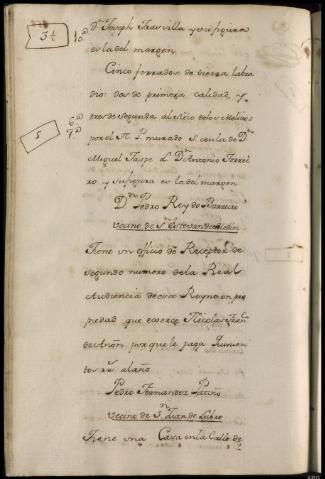 3½
10.ª
Dⁿ Joseph Travilla y su figura
es la del margen
Cinco ferrados de tierra labra
dio: dos de primera calidad, y
6.ª
tres de segunda al sitio de los Molinos
5
7.ª
por el N. P. murado S. con la de Dⁿ
Miguel L. Dⁿ Antonio Ferrei
ro y su figura es la del margen
Dⁿ Pedro Rey do Barreiro
vecino de Sⁿ Estevan de
Tiene un officio de Receptor de
segundo numero de la Real
Audiencia de este Reyno en pro
piedad que exerce Nicolas Fran.
de Anon, porque le paga
tos rr. al año
Pedro Fernandez Patiño
vecino de Sⁿ Juan de Lubre
Tiene una Cassa en la Calle de